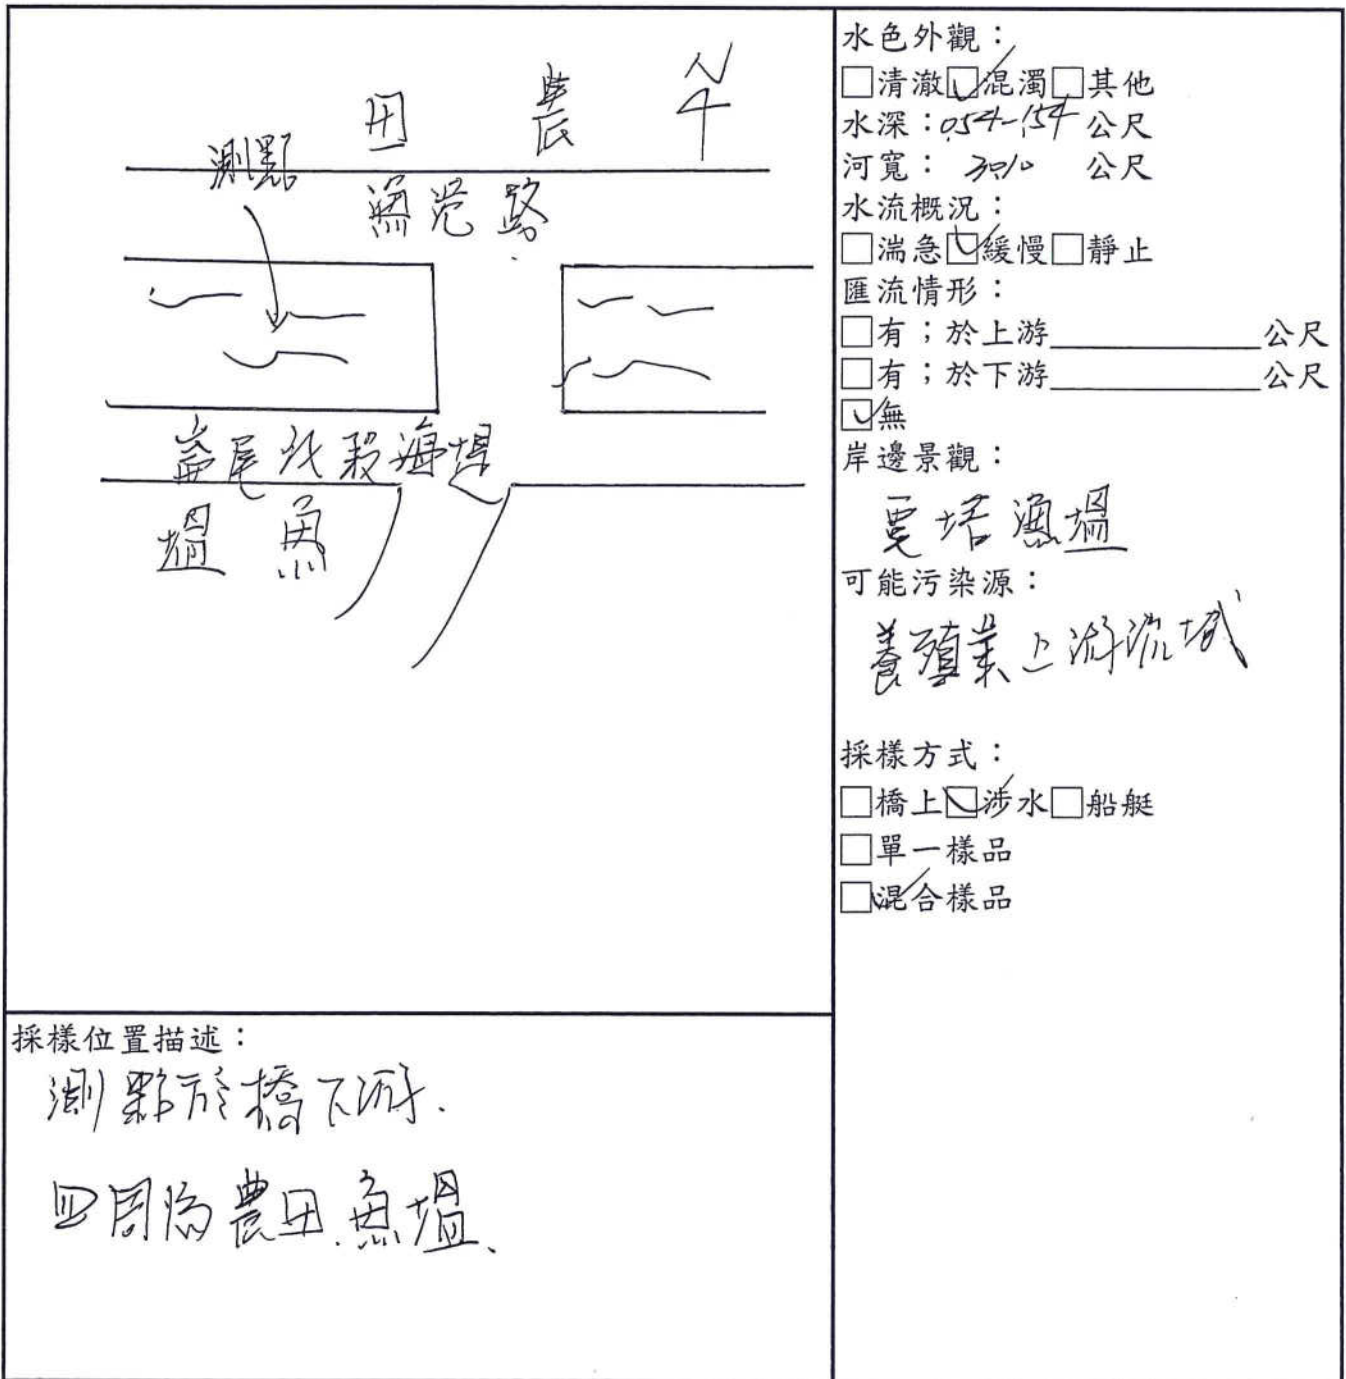 N
田 農
測點
漁港路
崙尾北段海堤
塭 魚
採樣位置描述：
測點於橋下游.
四周為農田.魚塭、
水色外觀：
□清澈☑混濁□其他
水深：0.54-1.54 公尺
河寬： 公尺
水流概況：
□湍急☑緩慢□靜止
匯流情形：
□有；於上游____________公尺
□有；於下游____________公尺
☑無
岸邊景觀：
漁塭
可能污染源：
養殖業上游流域
採樣方式：
□橋上☑涉水□船艇
□單一樣品
☑混合樣品